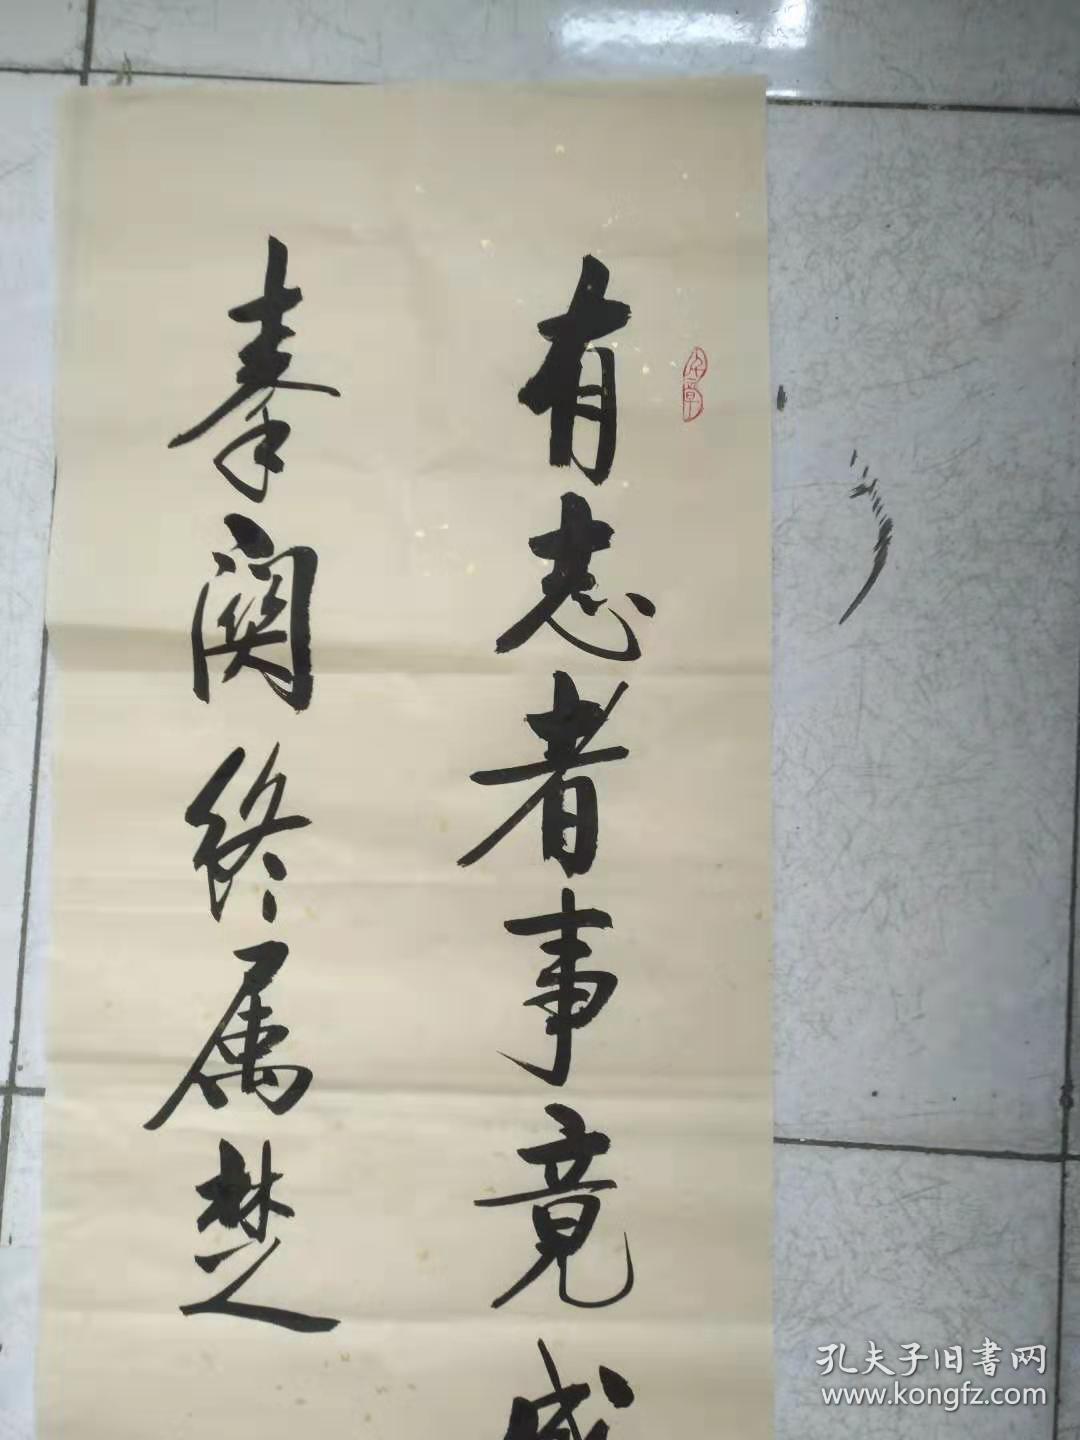 有志者事竟成
秦関终属楚
孔夫子旧書网
www.kongfz.com